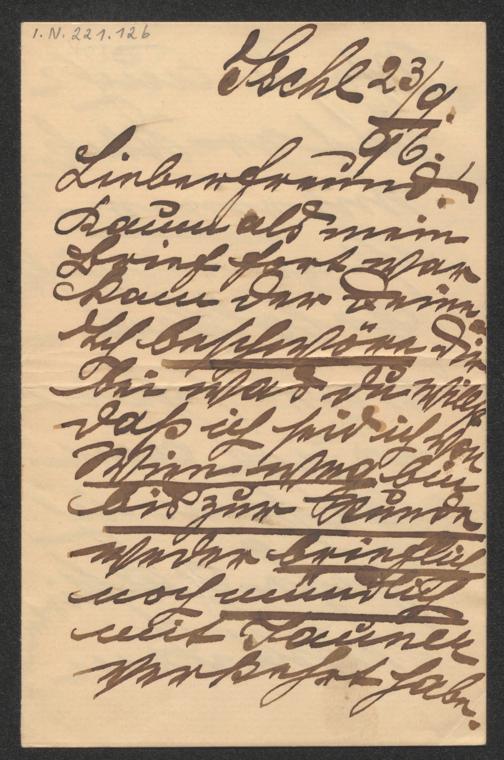 I.N. 221.126
Ischl 23/9.
96.
Lieber Freund!
Kaum als mein
Brief fort war
kam der Deine
Ich beschwöre dir
bei was du willst
daß ich seid ich von
Wien weg bin
bis zur Stunde
weder brieflich
noch mündlich
mit Jauner
verkehrt habe.